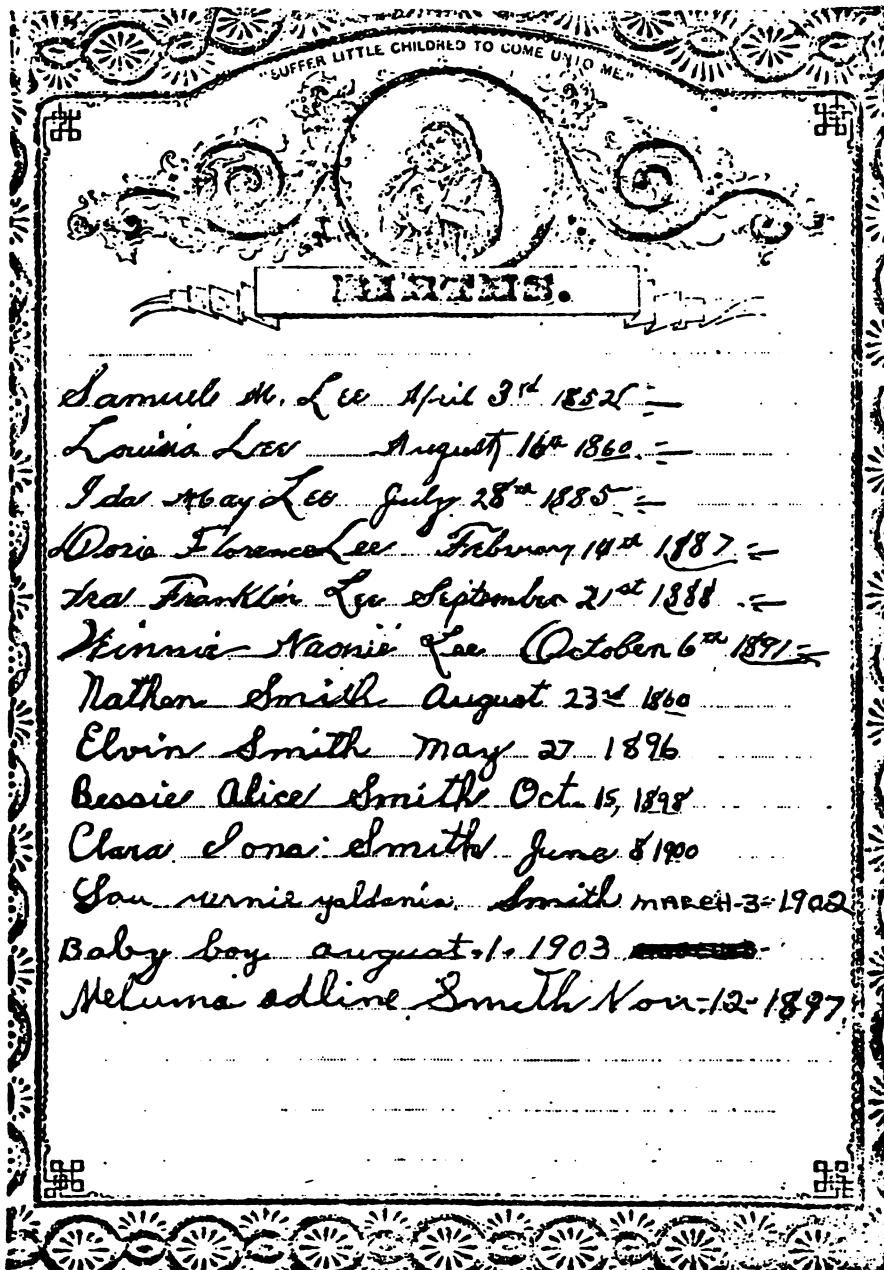 "SUFFER LITTLE CHILDREN TO COME UNTO ME"
BIRTHS.
Samuel M. Lee April 3rd 1852
Louisa Lee August 16th 1860
Ida May Lee July 28th 1885
Doris Florence Lee February 14th 1887
Ira Franklin Lee September 21st 1888
Winnie Naomie Lee October 6th 1891
Nathen Smith August 23rd 1860
Elvin Smith May 27 1896
Bessie Alice Smith Oct. 15, 1898
Clara Iona Smith June 8 1900
Lou Smith MARCH-3-1902
Baby boy august.1. 1903
adline Smith Nov-12-1897